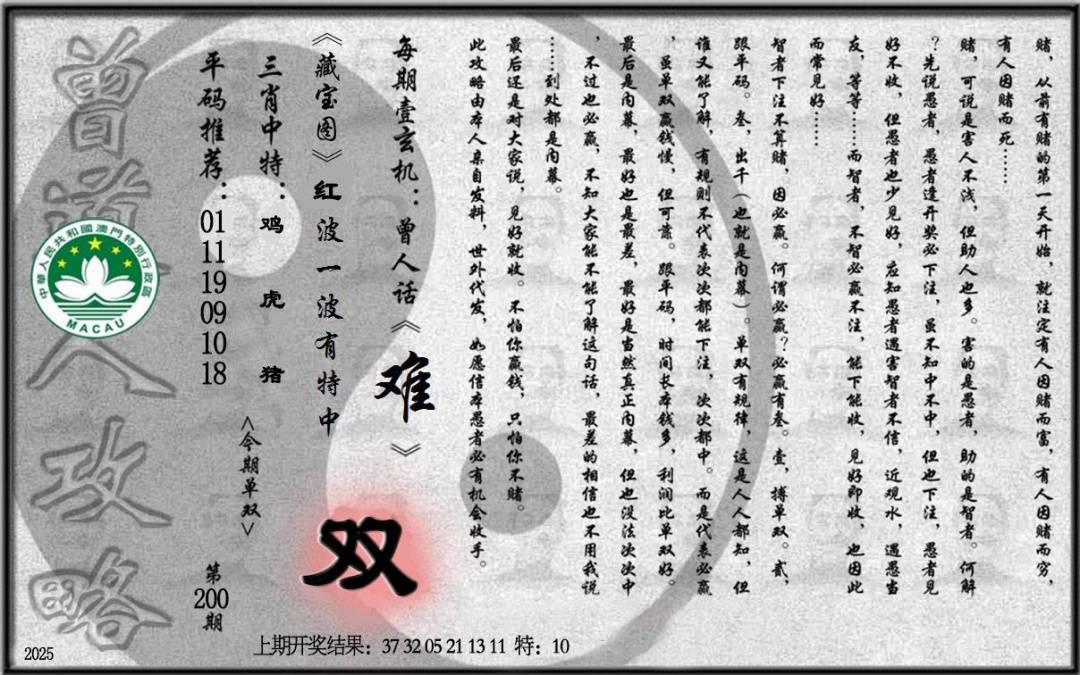 赌，从前有赌的第一天开始，就注定有人因赌而富，有人因赌而穷，
有人因赌而死……
赌，可说是害人不浅，但助人也多。害的是愚者，助的是智者。何解
？先说愚者，愚者逢开奖必下注，虽不知中不中，但也下注，愚者见
好不收，但愚者也少见好，应知愚者遇害智者不信，近观水，遇愚当
友，等等……而智者，不智必赢不注，能下能收，见好即收，也因此
而常见好……
智者下注不算赌，因必赢。何谓必赢？必赢有叁。壹，搏单双。贰，
跟平码。叁，出千（也就是内幕）。单双有规律，这是人人都知，但
谁又能了解，有规则不代表次次都能下注，次次都中。而是代表必赢
，虽单双赢钱慢，但可靠。跟平码，时间长本钱多，利润比单双好。
最后是内幕，最好也是最差，最好是当然真正内幕，但也没法次次中
，不过也必赢，不知大家能不能了解这句话，最差的相信也不用我说
……到处都是内幕。
最后还是对大家说，见好就收。不怕你赢钱，只怕你不赌。
此攻略由本人亲自发料，世外代发，如愿信本愚者必有机会收手。
每期壹玄机：曾人话《难》
《藏宝图》红波一波有特中
双
三肖中特：鸡 虎 猪
<今期单双>
平码推荐：01 11 19 09 10 18
第200期
曾道人攻略
中華人民共和國澳門特別行政區
MACAU
2025
上期开奖结果：37 32 05 21 13 11 特：10